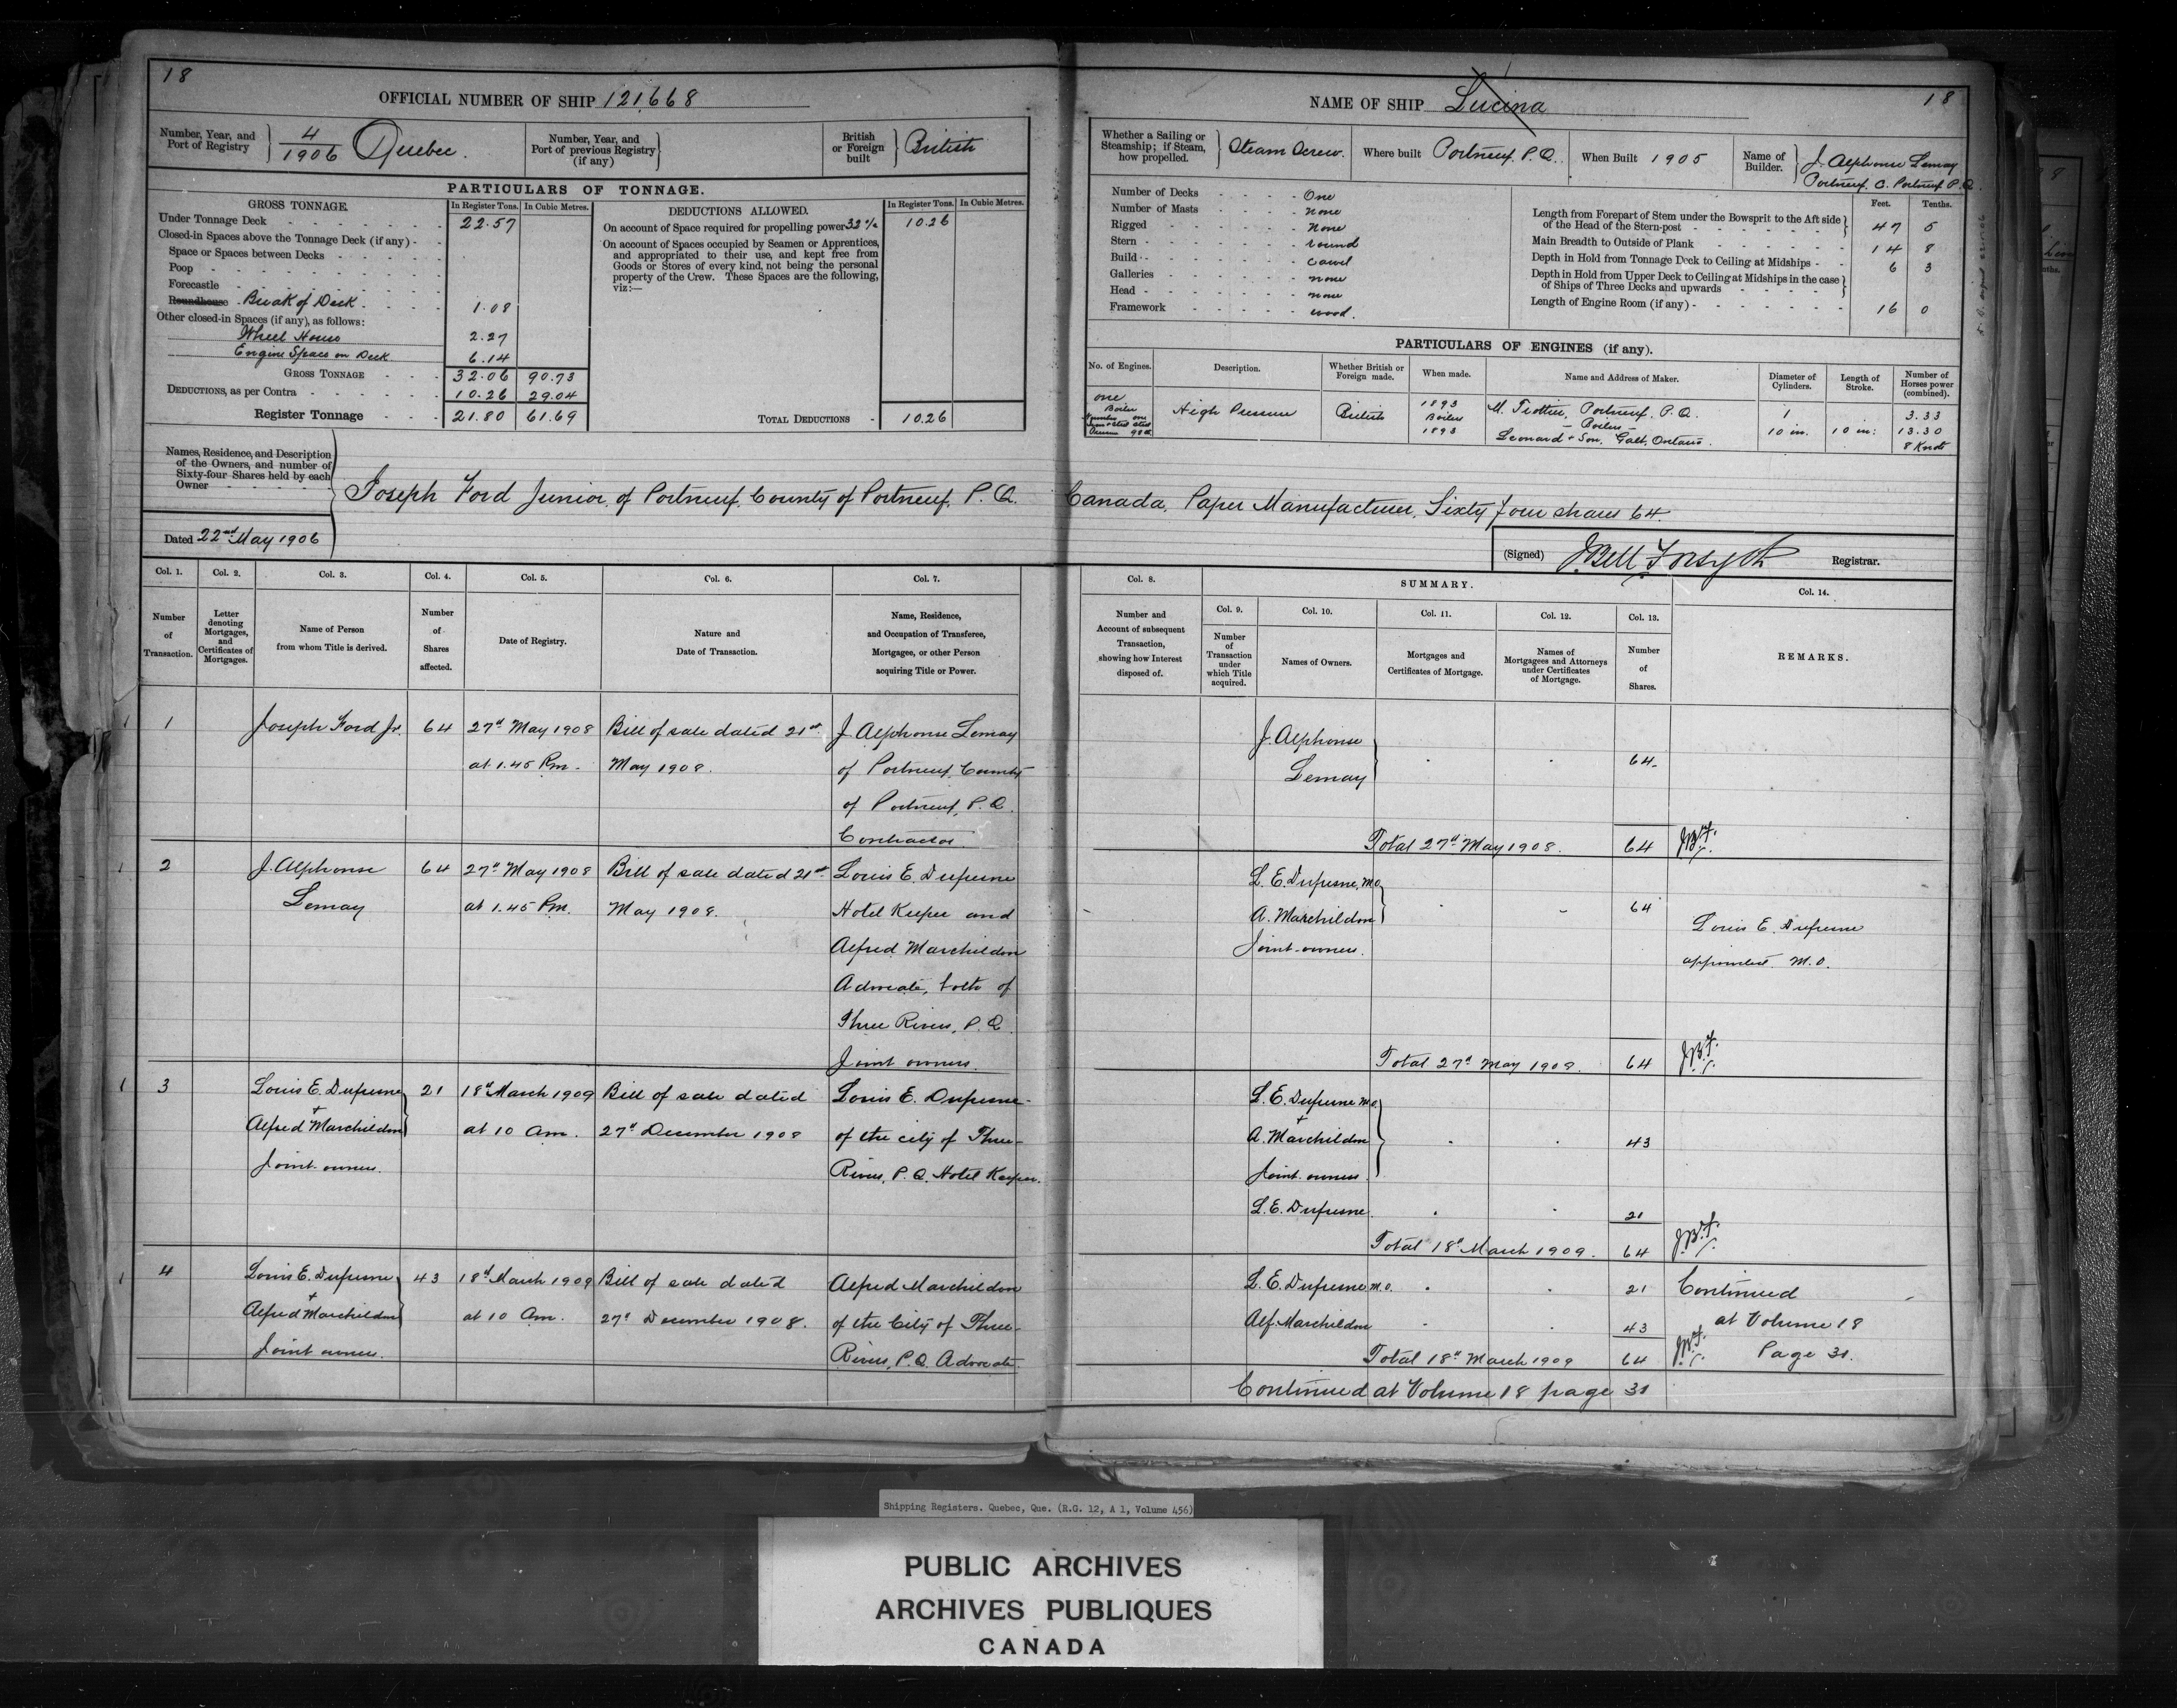 18
OFFICIAL NUMBER OF SHIP 121,668
Number, Year, and Port of Registry 4/1906 Quebec.
Number, Year, and Port of previous Registry (if any)
British or Foreign built British
PARTICULARS OF TONNAGE.
GROSS TONNAGE. In Register Tons. In Cubic Metres.
Under Tonnage Deck 22.57
Closed-in Spaces above the Tonnage Deck (if any)
Space or Spaces between Decks
Poop
Forecastle
Roundhouse Break of Deck 1.08
Other closed-in Spaces (if any), as follows:
Wheel House 2.27
Engine Space on Deck 6.14
GROSS TONNAGE 32.06 90.73
DEDUCTIONS, as per Contra 10.26 29.04
Register Tonnage 21.80 61.69
DEDUCTIONS ALLOWED. In Register Tons. In Cubic Metres.
On account of Space required for propelling power 32% 10.26
On account of Spaces occupied by Seamen or Apprentices,
and appropriated to their use, and kept free from
Goods or Stores of every kind, not being the personal
property of the Crew. These Spaces are the following,
viz:—
TOTAL DEDUCTIONS 10.26
NAME OF SHIP Lucina 18
Whether a Sailing or Steamship; if Steam, how propelled. Steam Screw.
Where built Portneuf. P.Q.
When Built 1905
Name of Builder. J. Alphonse Lemay
Portneuf. C. Portneuf P.Q.
Number of Decks One
Number of Masts none
Rigged none
Stern round
Build carvel
Galleries none
Head none
Framework wood.
Feet. Tenths.
Length from Forepart of Stem under the Bowsprit to the Aft side of the Head of the Stern-post 47 5
Main Breadth to Outside of Plank 14 8
Depth in Hold from Tonnage Deck to Ceiling at Midships 6 3
Depth in Hold from Upper Deck to Ceiling at Midships in the case of Ships of Three Decks and upwards
Length of Engine Room (if any) 16 0
PARTICULARS OF ENGINES (if any).
No. of Engines. Description. Whether British or Foreign made. When made. Name and Address of Maker. Diameter of Cylinders. Length of Stroke. Number of Horses power (combined).
one High Pressure British 1893 M. Trottier, Portneuf. P.Q. 1 3.33
Boiler Boiler Boiler 10 in. 10 in: 13.30
1893 Leonard + Son, Galt, Ontario. 8 Knots
Names, Residence, and Description of the Owners, and number of Sixty-four Shares held by each Owner
Joseph Ford Junior, of Portneuf. County of Portneuf. P.Q. Canada, Paper Manufacturer, Sixty four shares 64.
Dated 22nd May 1906
(Signed) J. Bell Forsyth Registrar.
Col. 1. Col. 2. Col. 3. Col. 4. Col. 5. Col. 6. Col. 7.
Number of Transaction.
Letter denoting Mortgages, and Certificates of Mortgages.
Name of Person from whom Title is derived.
Number of Shares affected.
Date of Registry.
Nature and Date of Transaction.
Name, Residence, and Occupation of Transferee, Mortgagee, or other Person acquiring Title or Power.
Col. 8. SUMMARY. Col. 14.
Col. 9. Col. 10. Col. 11. Col. 12. Col. 13.
Number and Account of subsequent Transaction, showing how Interest disposed of.
Number of Transaction under which Title acquired.
Names of Owners.
Mortgages and Certificates of Mortgage.
Names of Mortgagees and Attorneys under Certificates of Mortgage.
Number of Shares.
REMARKS.
1 Joseph Ford Jr. 64 27th May 1908 Bill of sale dated 21st J Alphonse Lemay
at 1.45 Pm. May 1908. of Portneuf. County
of Portneuf, P.Q.
Contractor
J. Alphonse
Lemay 64
Total 27th May 1908. 64 J.B.F.
2 J. Alphonse 64 27th May 1908 Bill of sale dated 21st Louis E. Dufresne
Lemay at 1.45 Pm. May 1908. Hotel Keeper and
Alfred Marchildon
Advocate, both of
Three Rivers, P.Q.
Joint owners.
L. E. Dufresne, M.O.
A. Marchildon 64
Joint owners.
Louis E. Dufresne
appointed M.O.
Total 27th May 1908. 64 J.B.F.
3 Louis E. Dufresne 21 18th March 1909 Bill of sale dated Louis E. Dufresne
+ Alfred Marchildon at 10 am. 27th December 1908 of the city of Three
Joint owners. Rivers, P.Q. Hotel Keeper.
L. E. Dufresne M.O.
+
A. Marchildon 43
Joint owners
L. E. Dufresne 21
Total 18th March 1909. 64 J.B.F.
4 Louis E. Dufresne 43 18th March 1909 Bill of sale dated Alfred Marchildon
+ Alfred Marchildon at 10 am. 27th December 1908. of the City of Three
Joint owners. Rivers, P.Q. Advocate
L. E. Dufresne M.O. 21 Continued
Alf. Marchildon 43 at Volume 18
Total 18th March 1909 64 J.B.F. Page 31.
Continued at Volume 18 page 31
Shipping Registers. Quebec, Que. (R.G. 12, A 1, Volume 456)
PUBLIC ARCHIVES
ARCHIVES PUBLIQUES
CANADA